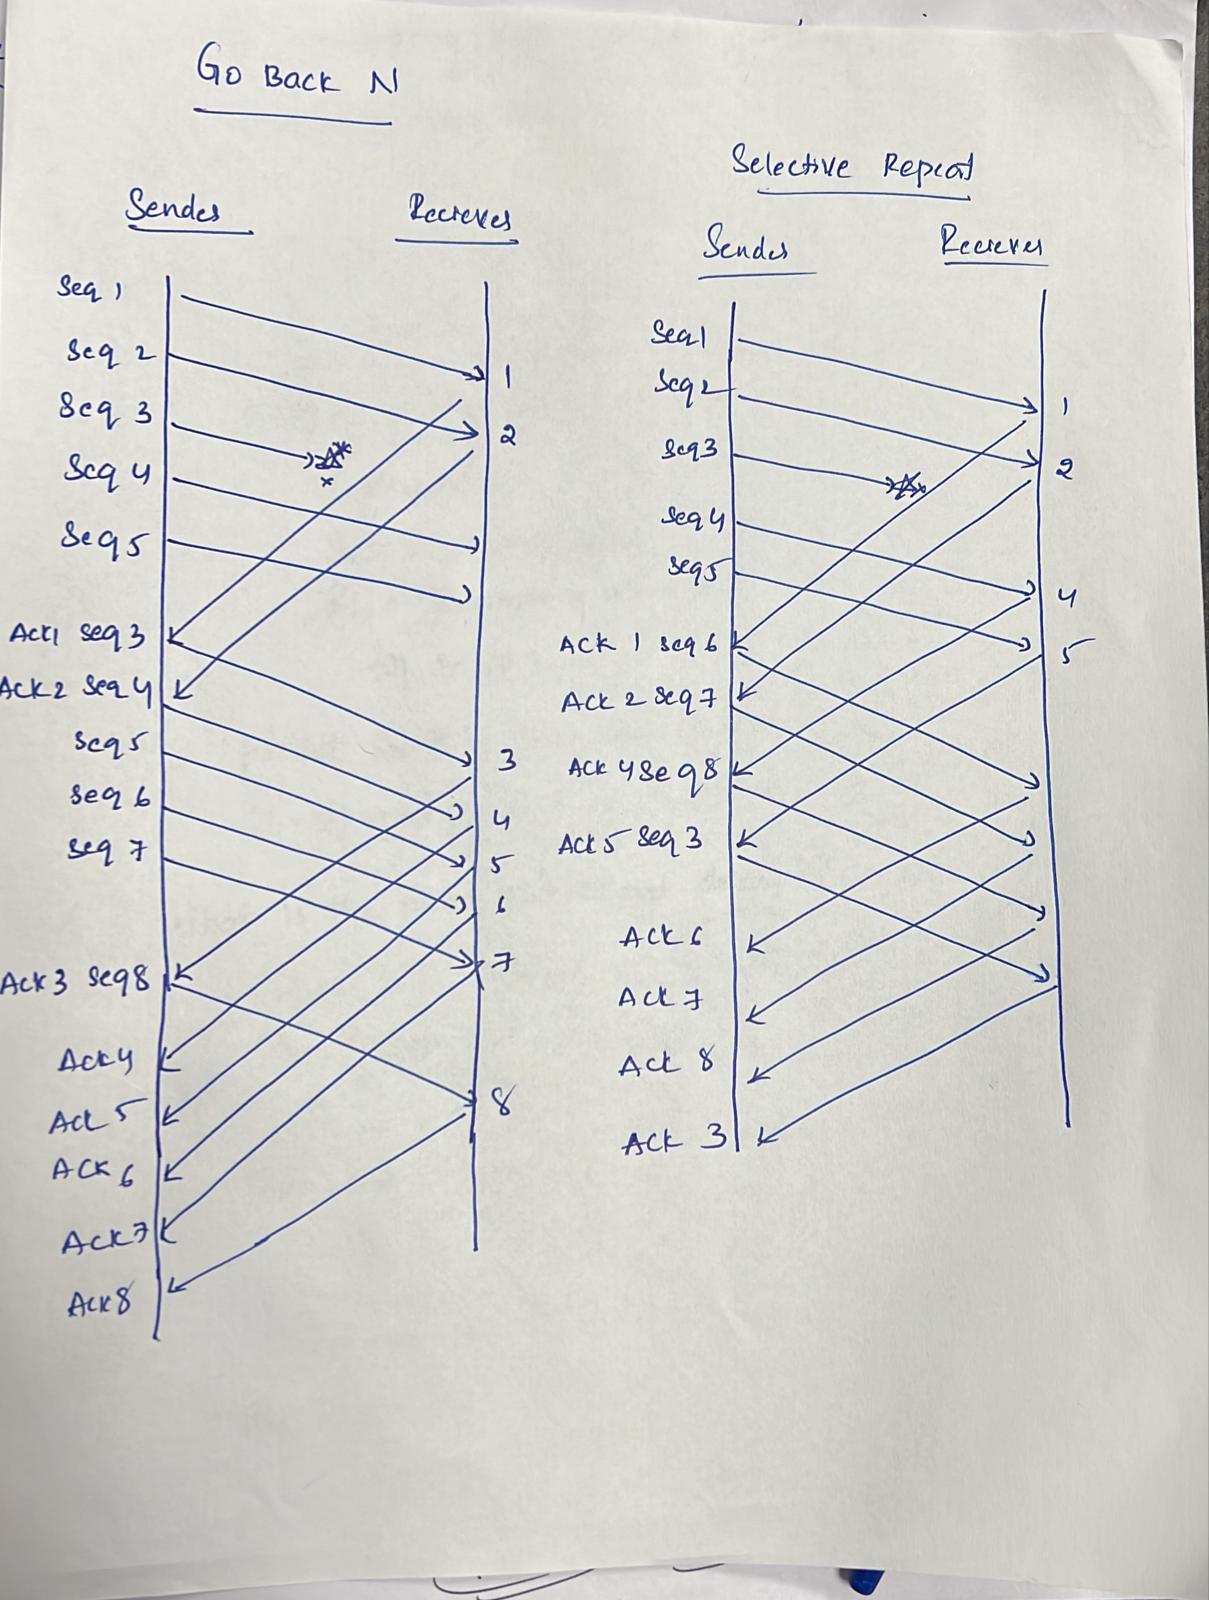 Go Back N
Sender Reciever
Seq 1
1
Seq 2
2
Seq 3
Seq 4
Seq 5
Ack1 Seq 3
Ack 2 Seq 4
3
Seq 5
4
Seq 6
5
Seq 7
6
7
Ack 3 Seq 8
Ack 4
8
Ack 5
Ack 6
Ack 7
Ack 8
Selective Repeat
Sender Reciever
Seq1
1
Seq 2
2
Seq3
Seq 4
4
Seq5
5
Ack 1 Seq 6
Ack 2 Seq 7
Ack 4 Seq 8
Ack 5 Seq 3
Ack 6
Ack 7
Ack 8
Ack 3